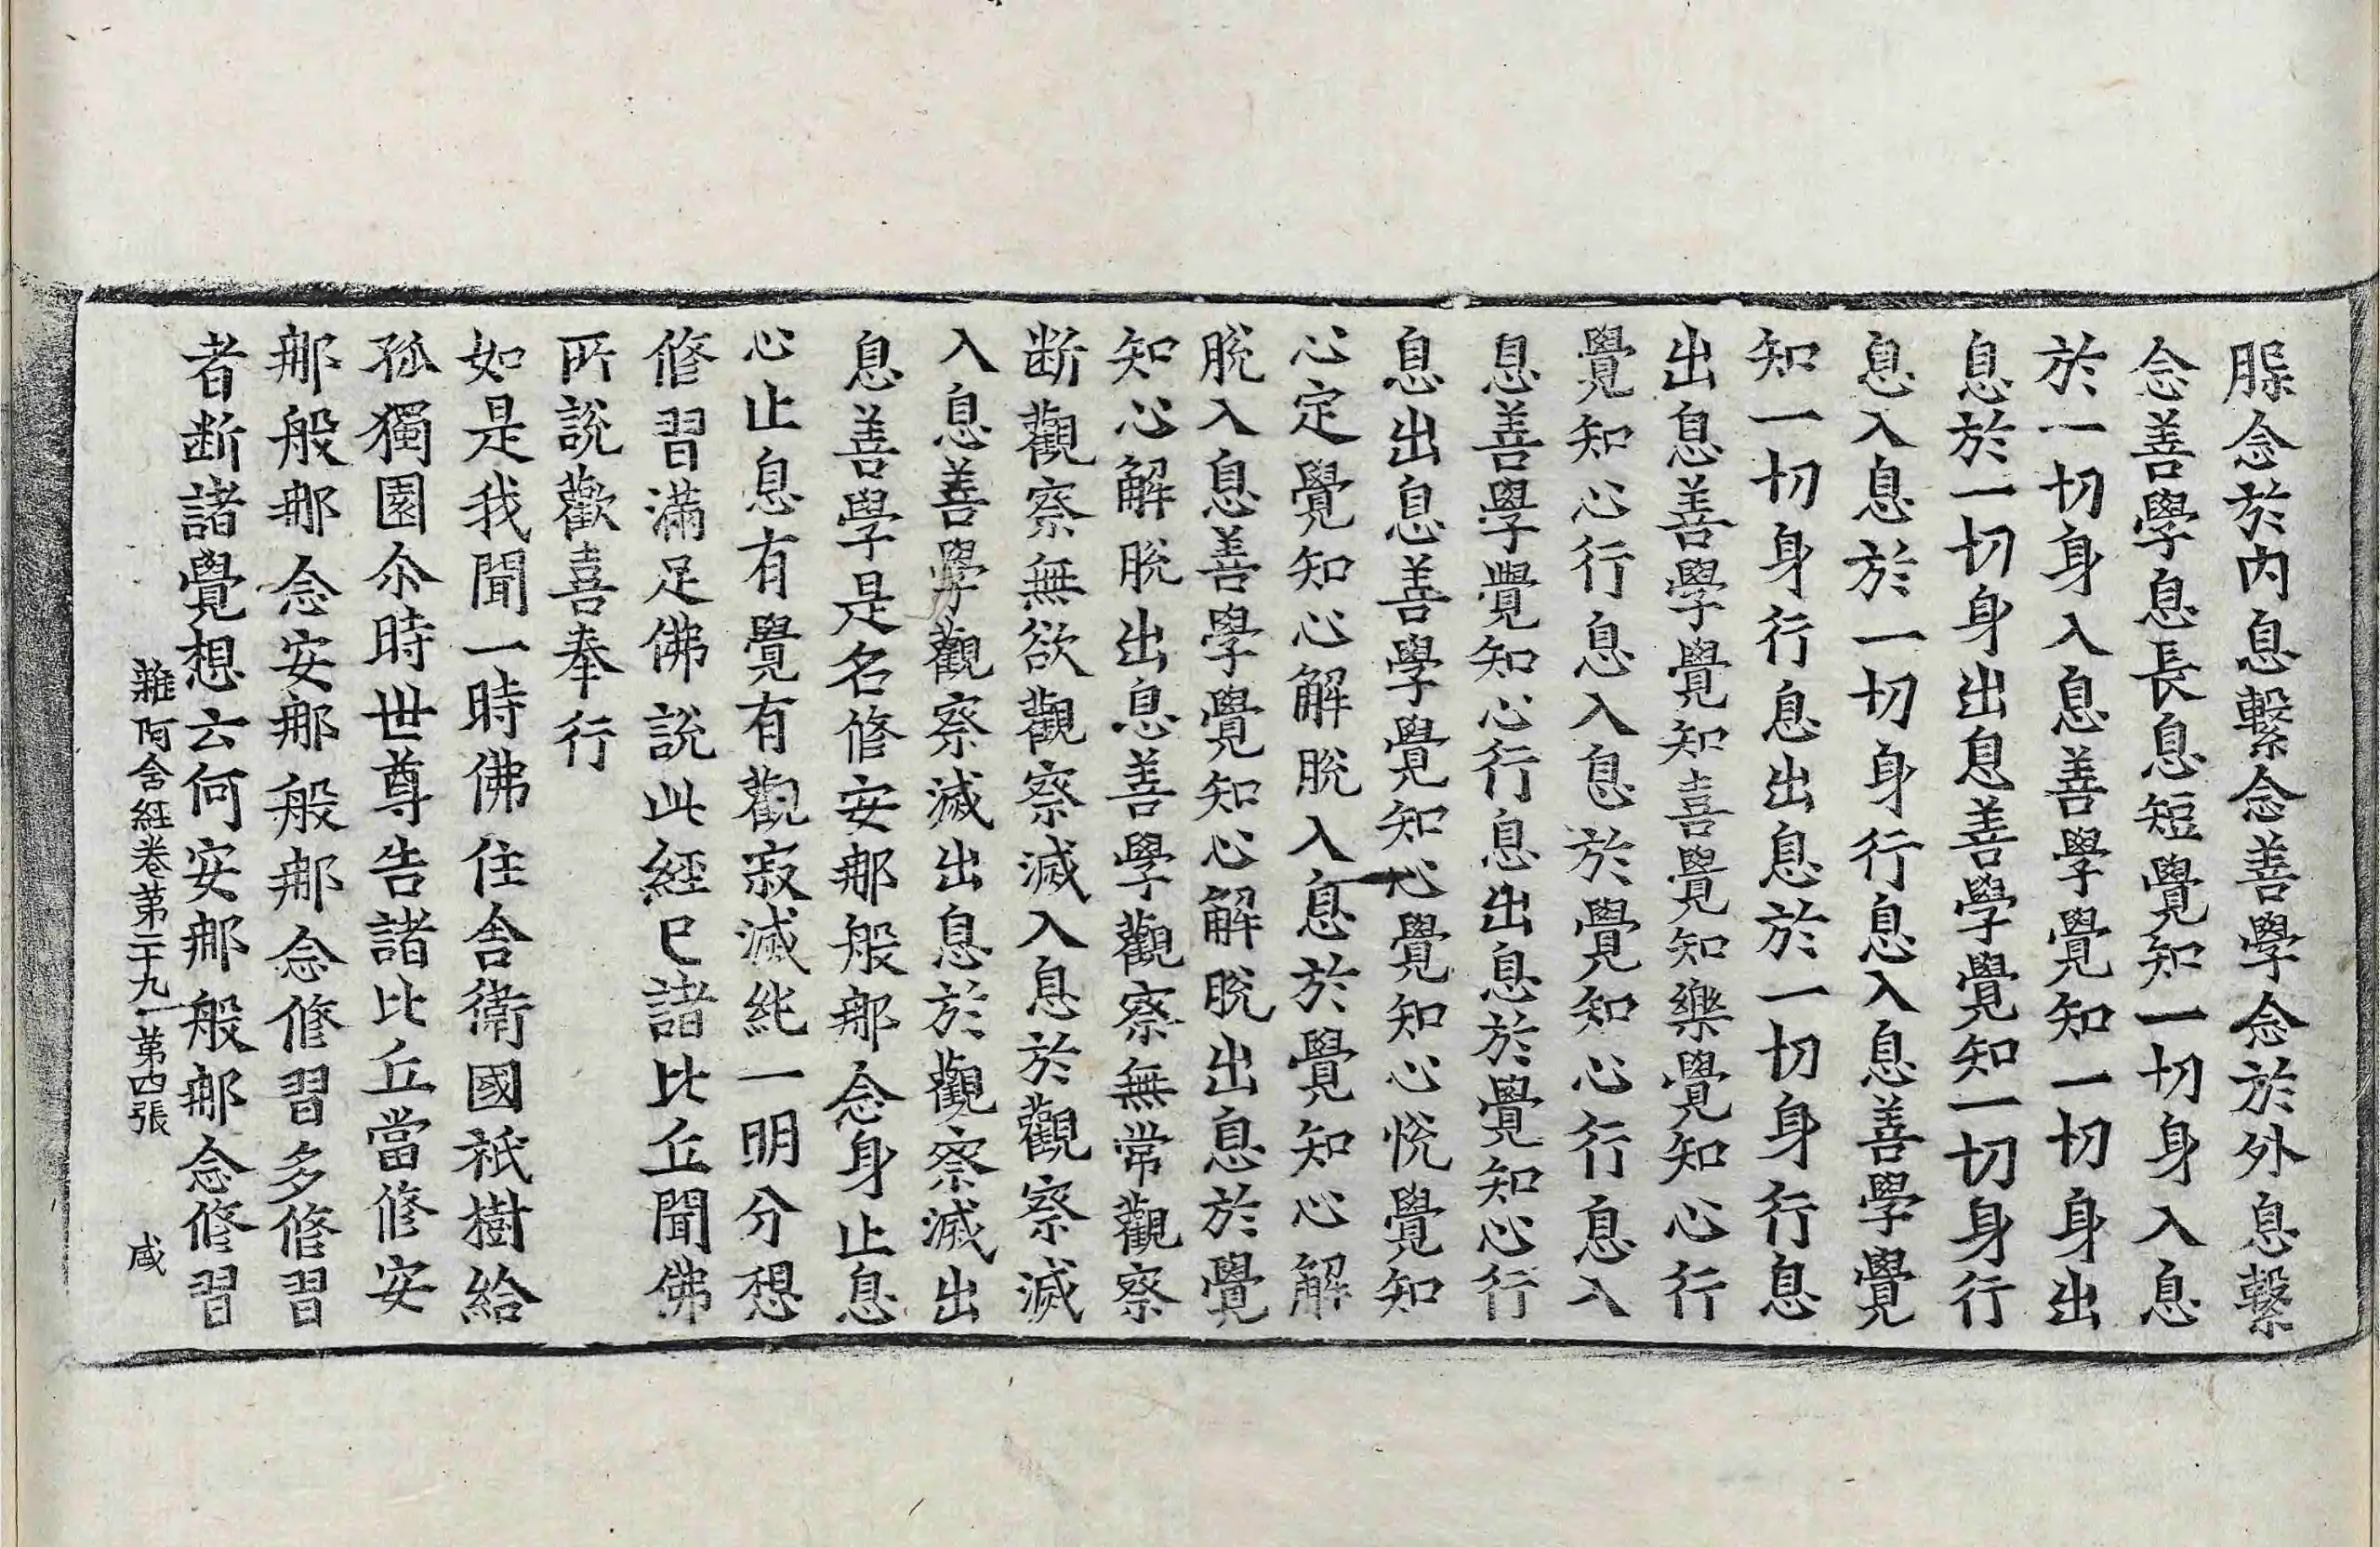 腳念於內息繫念善學念於外息繫
念善學息長息短覺知一切身入息
於一切身入息善學覺知一切身出
息於一切身出息善學覺知一切身行
息入息於一切身行息入息善學覺
知一切身行息出息於一切身行息
出息善學覺知喜覺知樂覺知心行
覺知心行息入息於覺知心行息入
息善學覺知心行息出息於覺知心行
息出息善學覺知心覺知心悅覺知
心定覺知心解脫入息於覺知心解
脫入息善學覺知心解脫出息於覺
知心解脫出息善學觀察無常觀察
断觀察無欲觀察滅入息於觀察滅
入息善學觀察滅出息於觀察滅出
息善學是名修安那般那念身止息
心止息有覺有觀寂滅純一明分想
修習滿足佛說此經已諸比丘聞佛
所說歡喜奉行
如是我聞一時佛住舍衛國祇樹給
孤獨園尒時世尊告諸比丘當修安
那般那念安那般那念修習多修習
者断諸覺想云何安那般那念修習
雜阿含經卷第二十九 第四張 咸